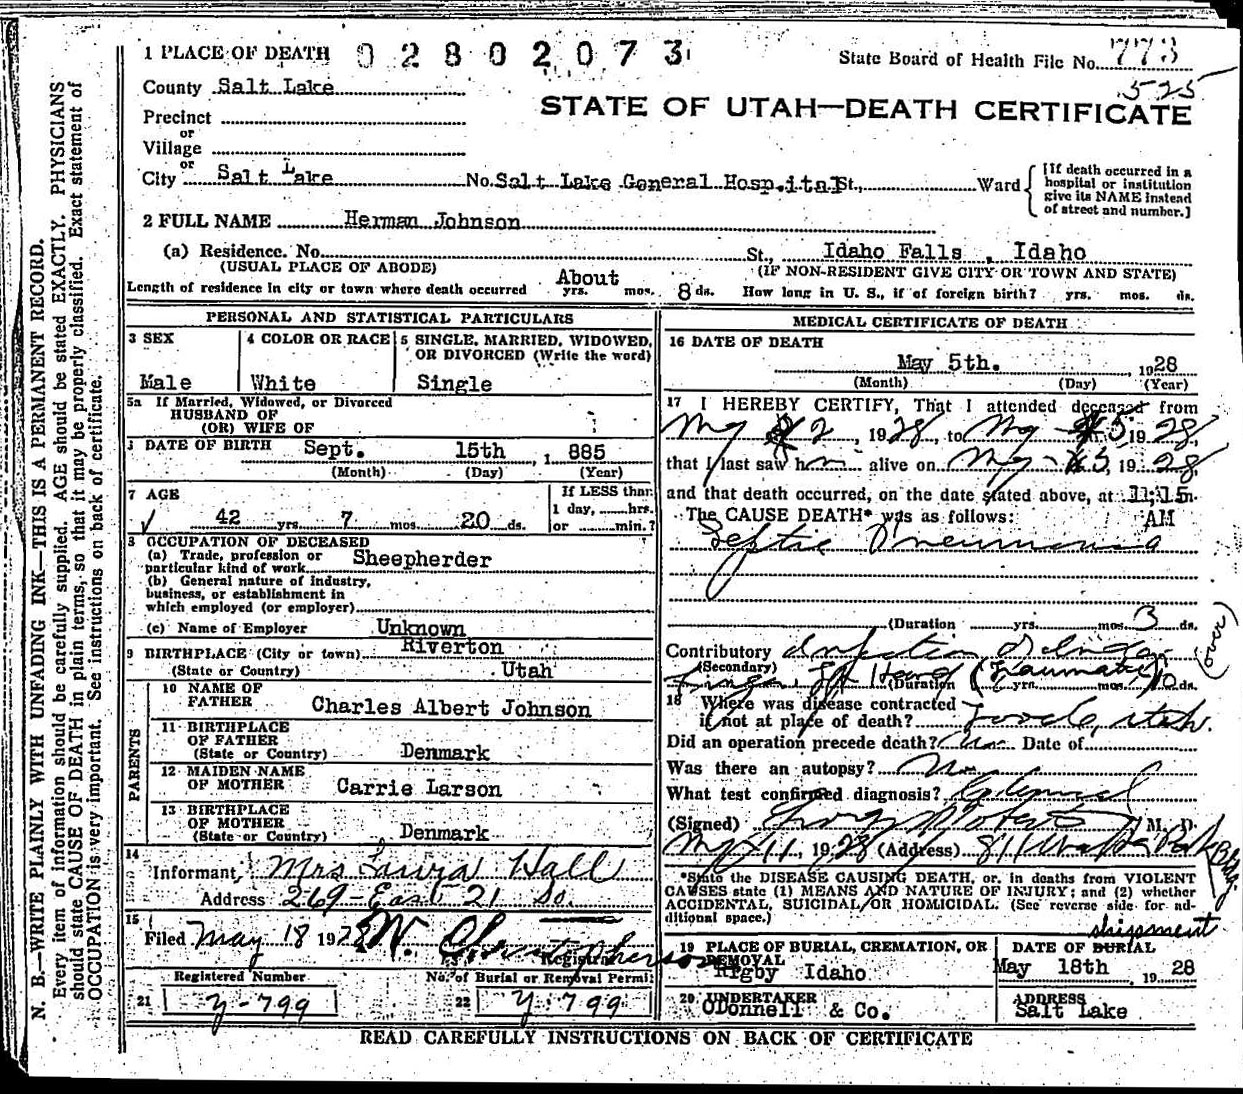 1 PLACE OF DEATH 02802073
State Board of Health File No. 773
525
County Salt Lake
STATE OF UTAH—DEATH CERTIFICATE
Precinct
or
Village
or
City Salt Lake No. Salt Lake General Hospital St., Ward
[If death occurred in a hospital or institution give its NAME instead of street and number.]
2 FULL NAME Herman Johnson
(a) Residence. No. St., Idaho Falls, Idaho
(USUAL PLACE OF ABODE) (IF NON-RESIDENT GIVE CITY OR TOWN AND STATE)
Length of residence in city or town where death occurred About yrs. mos. 8 ds. How long in U. S., if of foreign birth? yrs. mos. ds.
PERSONAL AND STATISTICAL PARTICULARS
3 SEX
4 COLOR OR RACE
5 SINGLE, MARRIED, WIDOWED, OR DIVORCED (Write the word)
Male White Single
5a If Married, Widowed, or Divorced
HUSBAND OF
(OR) WIFE OF
DATE OF BIRTH Sept. 15th, 1885
(Month) (Day) (Year)
7 AGE
If LESS than
1 day, hrs.
or min.?
√ 42 yrs. 7 mos. 20 ds.
8 OCCUPATION OF DECEASED
(a) Trade, profession or
particular kind of work Sheepherder
(b) General nature of industry,
business, or establishment in
which employed (or employer)
(c) Name of Employer Unknown
9 BIRTHPLACE (City or town) Riverton
(State or Country) Utah
PARENTS
10 NAME OF
FATHER Charles Albert Johnson
11 BIRTHPLACE
OF FATHER
(State or Country) Denmark
12 MAIDEN NAME
OF MOTHER Carrie Larson
13 BIRTHPLACE
OF MOTHER
(State or Country) Denmark
14
Informant, Mrs Laura Hall
Address 269-East 21 So.
15
Filed May 18 1928 W. Christopherson
Registrar
Registered Number No. of Burial or Removal Permit
21 Y-799 22 Y-799
MEDICAL CERTIFICATE OF DEATH
16 DATE OF DEATH
May 5th., 1928
(Month) (Day) (Year)
17 I HEREBY CERTIFY, That I attended deceased from
My 2, 1928, to My - 5, 1928,
that I last saw him alive on My - 5, 1928,
and that death occurred, on the date stated above, at 11;15 m.
AM
The CAUSE DEATH* was as follows:
Septic Pneumonia
(Duration yrs. mos. 3 ds.
Contributory Infection
(Secondary)
finger, Lft Hand (Traumatic)
(Duration yrs. mos. 10 ds.
(over)
18 Where was disease contracted
if not at place of death? Utah.
Did an operation precede death? No Date of
Was there an autopsy? No
What test confirmed diagnosis?
(Signed) M. D.
My 11, 1928 (Address) 811 Bldg.
*State the DISEASE CAUSING DEATH, or, in deaths from VIOLENT
CAUSES state (1) MEANS AND NATURE OF INJURY; and (2) whether
ACCIDENTAL, SUICIDAL OR HOMICIDAL. (See reverse side for ad-
ditional space.)
shipment
19 PLACE OF BURIAL, CREMATION, OR
REMOVAL
Rigby Idaho
DATE OF BURIAL
May 18th, 1928
20 UNDERTAKER
ODonnell & Co.
ADDRESS
Salt Lake
READ CAREFULLY INSTRUCTIONS ON BACK OF CERTIFICATE
N. B.—WRITE PLAINLY WITH UNFADING INK—THIS IS A PERMANENT RECORD.
Every item of information should be carefully supplied. AGE should be stated EXACTLY. PHYSICIANS
should state CAUSE OF DEATH in plain terms, so that it may be properly classified. Exact statement of
OCCUPATION is very important. See instructions on back of certificate.